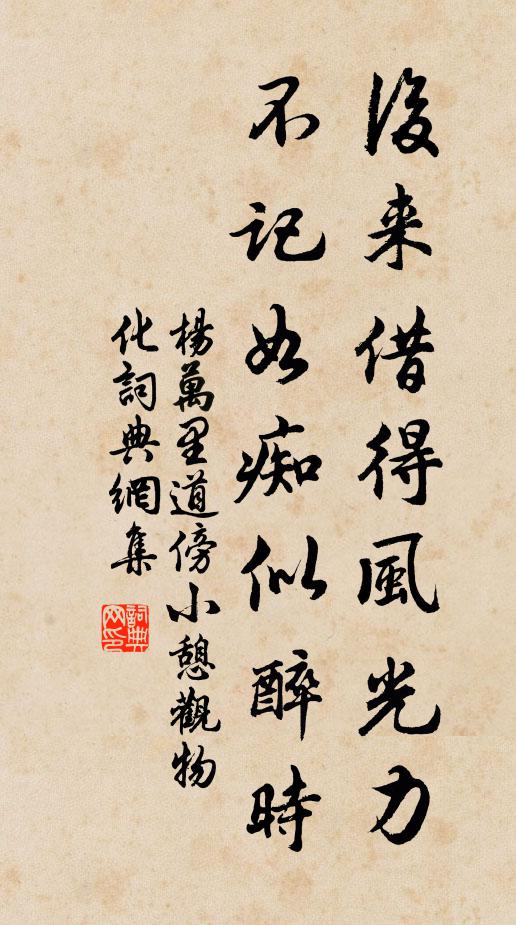 後来借得風光力
不記如痴似醉時
楊萬里道傍小憩觀物
化詞典網集
詞典网印